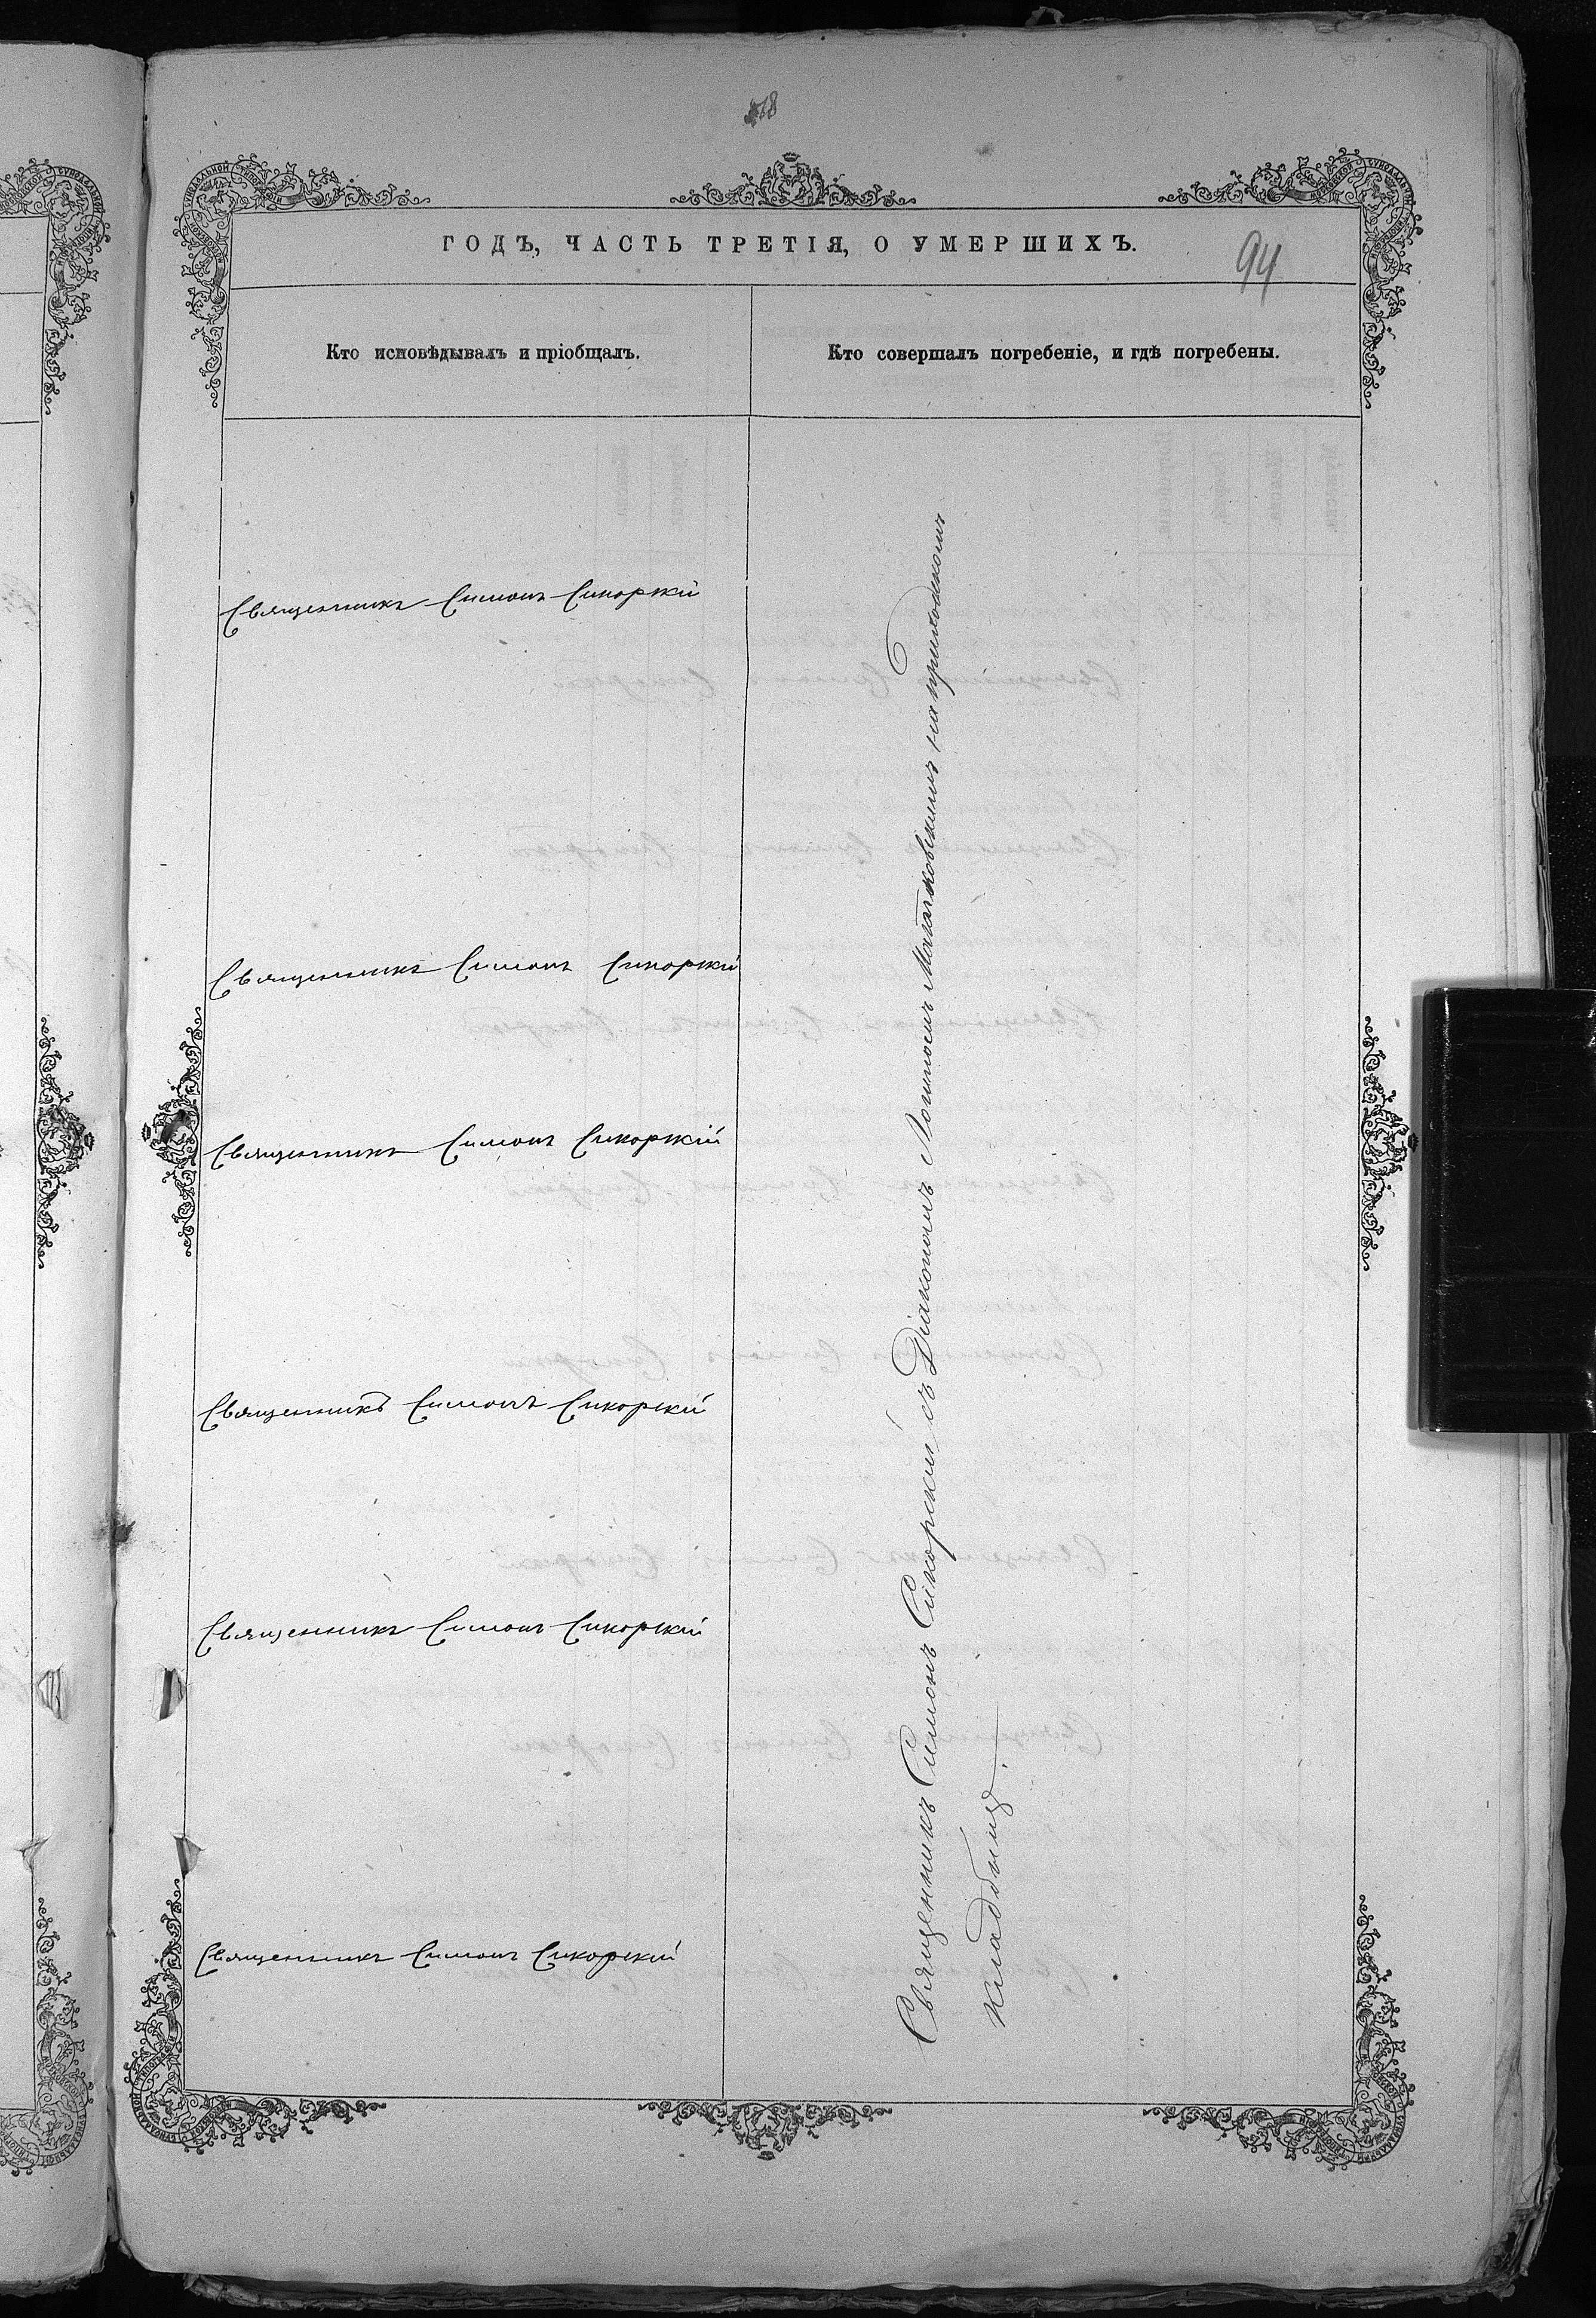 ГОДЪ, ЧАСТЬ ТРЕТІЯ, О УМЕРШИХЪ.
94
Кто исповѣдывалъ и пріобщалъ.
Кто совершалъ погребеніе, и гдѣ погребены.
Священникъ Симонъ Сикорскій
Священникъ Симонъ Сикорскій
Священникъ Симонъ Сикорскій
Священникъ Симонъ Сикорскій
Священникъ Симонъ Сикорскій
Священникъ Симонъ Сикорскій
Священникъ Симонъ Сикорскій съ Діакономъ на приходскомъ
кладбищѣ.